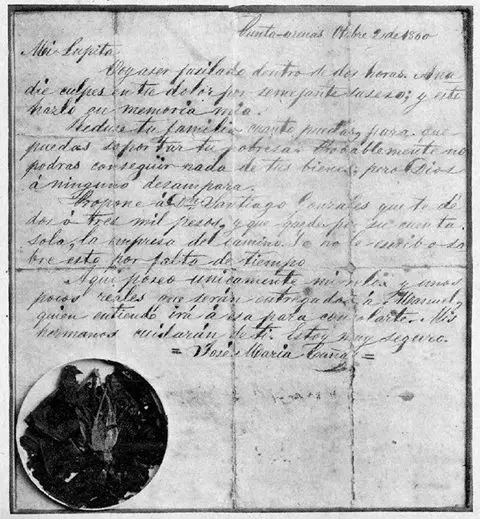 Punta-arenas Otbre 2 de 1860
Mi Lupita
Voy a ser fusilado dentro de dos horas. A na
die culpes en tu dolor por semejante suseso; y esto
hazlo en memoria mia.
Reduce tu familia cuanto puedas, para que
puedas soportar tu pobresa. Probablemente no
podras conseguir nada de tus bienes, pero Dios
á ninguno desampara.
Propone a Dn Santiago Gonzales que te dé
dos ó tres mil pesos, y que quede por su cuenta
sola, la empresa del camino. No le escribo so
bre esto por falta de tiempo
Aquí poseo unicamente mi relox y unos
pocos reales que serán entregados á Manuel,
quien entiendo irá á esa para consolarte. Mis
hermanos cuidarán de ti. Estoy muy seguro.
= José Maria Cañas =